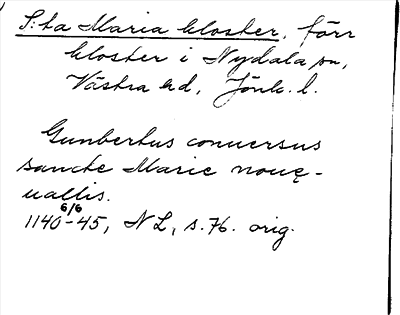 S:ta Maria kloster, förr
kloster i Nydala sn,
Västra hd, Jönk. l.
Gunbertus conuersus
sancte Marie nouę-
uallis.
1140 6/6 -45, NL, s. 76. orig.